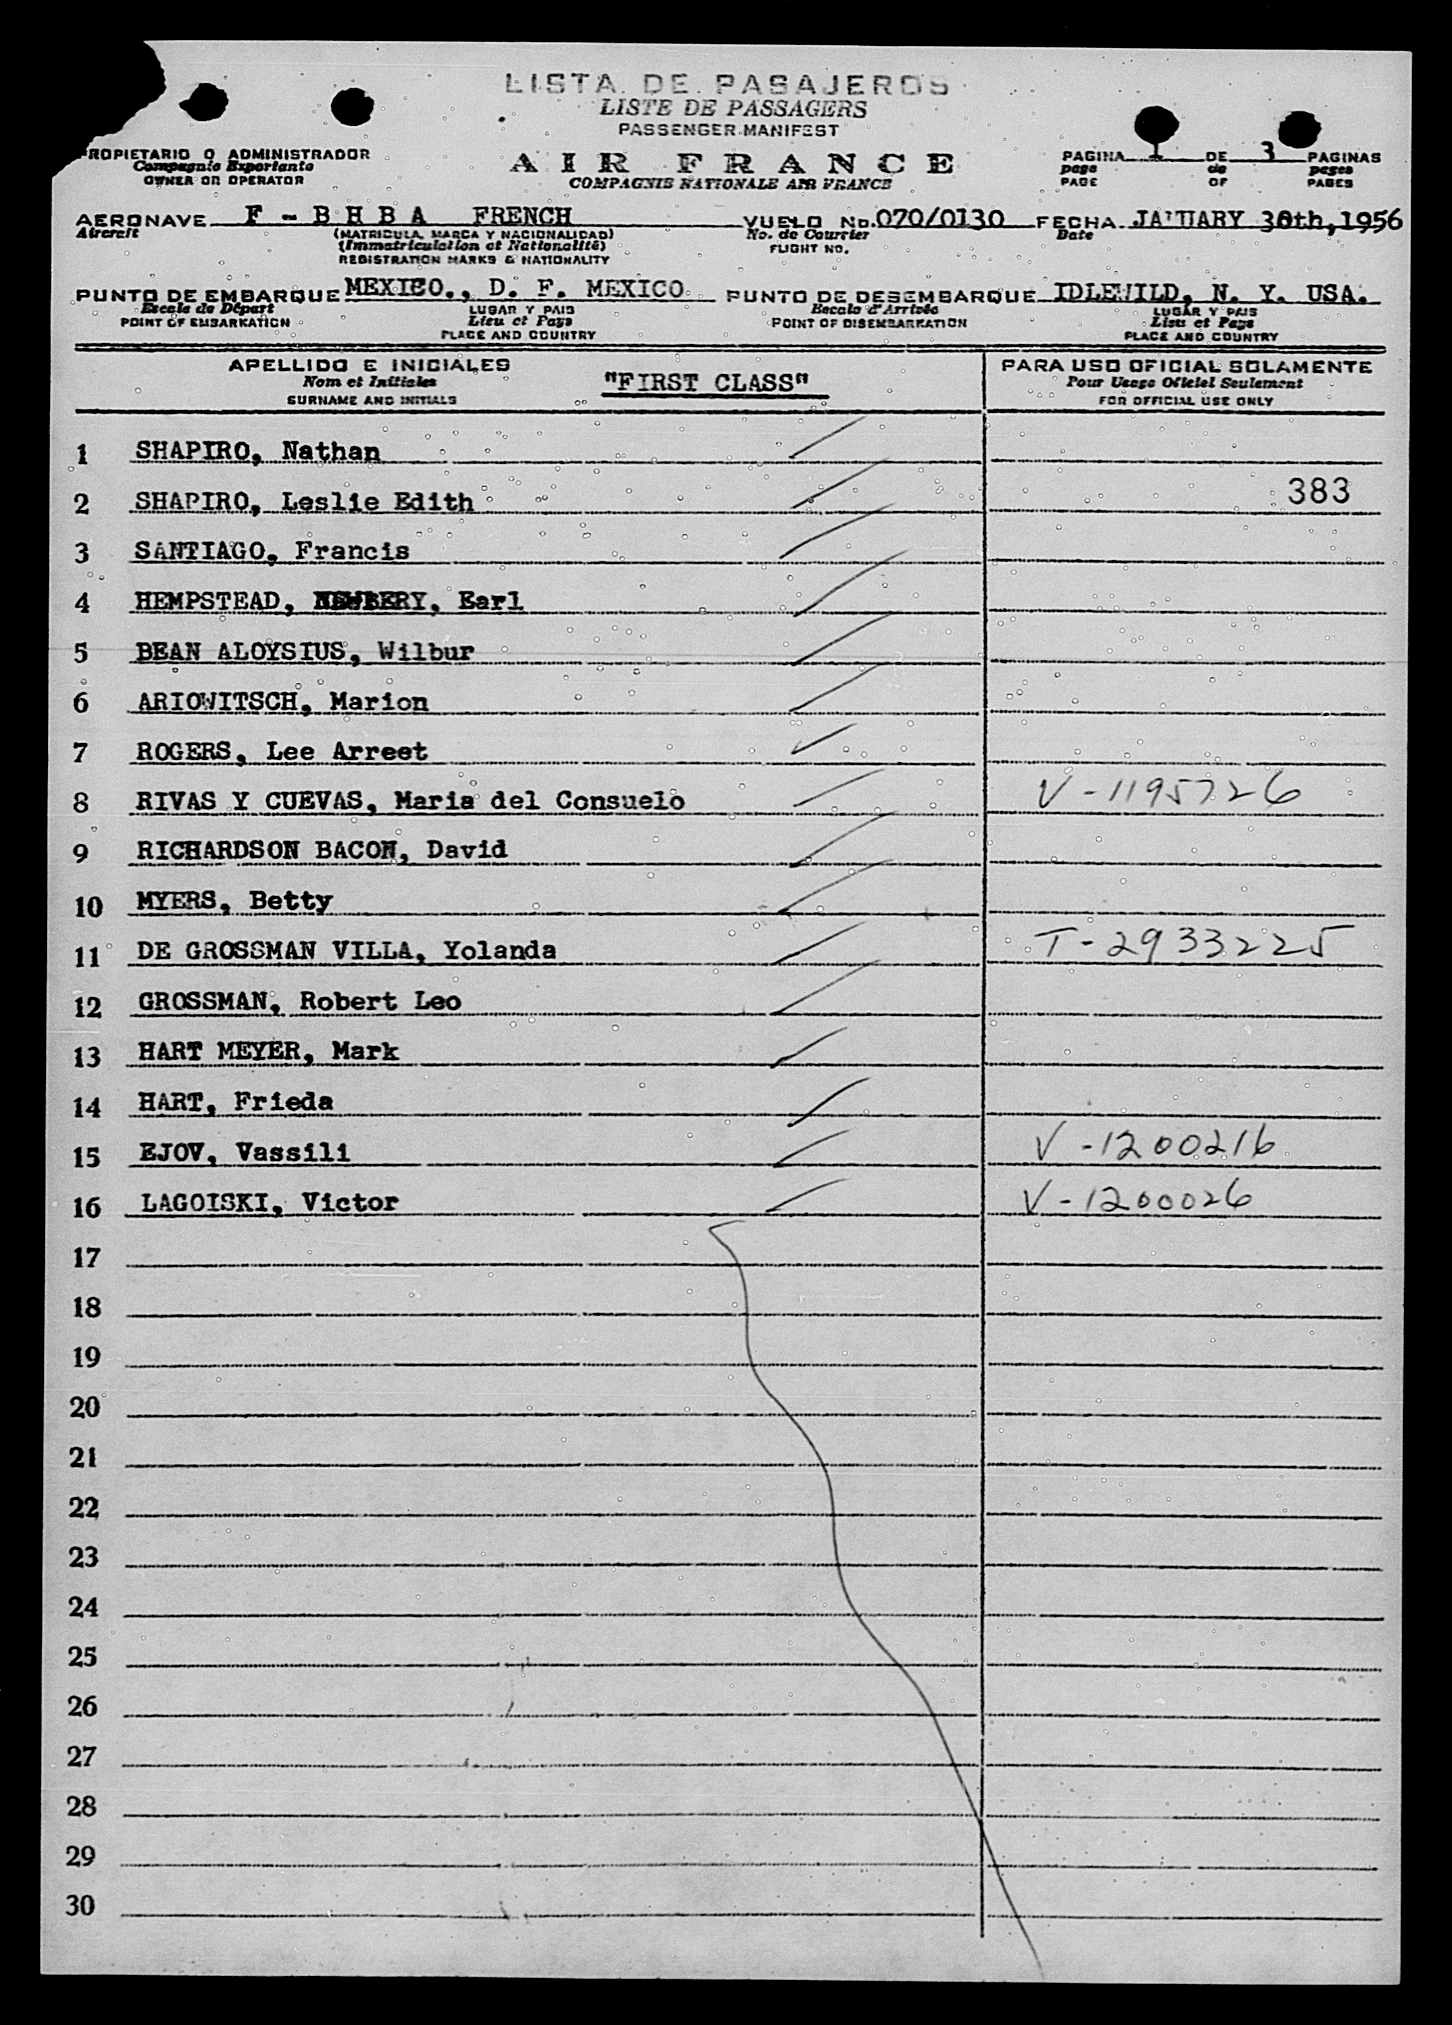 LISTA DE PASAJEROS
LISTE DE PASSAGERS
PASSENGER MANIFEST
PROPIETARIO O ADMINISTRADOR
Compagnie Exportante
OWNER OR OPERATOR
AIR FRANCE
COMPAGNIE NATIONALE AIR FRANCE
PAGINA 1 DE 3 PAGINAS
page de pages
PAGE OF PAGES
AERONAVE F - B H B A FRENCH VUELO No. 070/0130 FECHA JANUARY 30th, 1956
Aircraft (MATRICULA, MARCA Y NACIONALIDAD) No. de Courrier Date
(Immatriculation et Nationalité) FLIGHT NO.
REGISTRATION MARKS & NATIONALITY
PUNTO DE EMBARQUE MEXICO., D. F. MEXICO PUNTO DE DESEMBARQUE IDLEWILD, N. Y. USA.
Escale de Départ LUGAR Y PAIS Escale d'Arrivée LUGAR Y PAIS
POINT OF EMBARKATION Lieu et Pays POINT OF DISEMBARKATION Lieu et Pays
PLACE AND COUNTRY PLACE AND COUNTRY
APELLIDO E INICIALES "FIRST CLASS" PARA USO OFICIAL SOLAMENTE
Nom et Initiales Pour Usage Officiel Seulement
SURNAME AND INITIALS FOR OFFICIAL USE ONLY
1 SHAPIRO, Nathan
2 SHAPIRO, Leslie Edith 383
3 SANTIAGO, Francis
4 HEMPSTEAD, Earl
5 BEAN ALOYSIUS, Wilbur
6 ARIOWITSCH, Marion
7 ROGERS, Lee Arreet
8 RIVAS Y CUEVAS, Maria del Consuelo V-1195726
9 RICHARDSON BACON, David
10 MYERS, Betty
11 DE GROSSMAN VILLA, Yolanda T-2933225
12 GROSSMAN, Robert Leo
13 HART MEYER, Mark
14 HART, Frieda
15 EJOV, Vassili V-1200216
16 LAGOISKI, Victor V-1200026
17
18
19
20
21
22
23
24
25
26
27
28
29
30